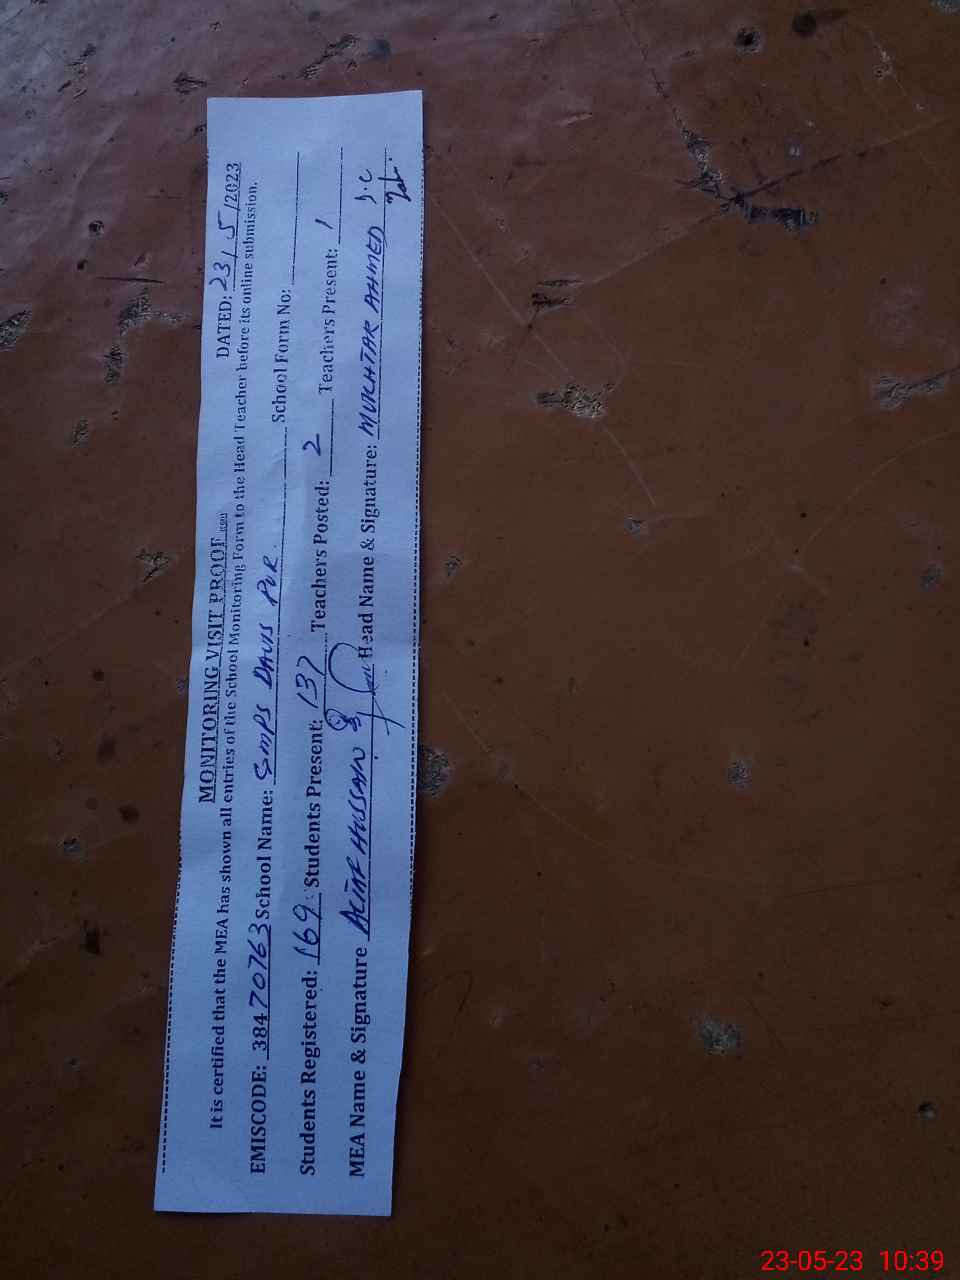 MONITORING VISIT PROOF
DATED: 23/5/2023
It is certified that the MEA has shown all entries of the School Monitoring Form to the Head Teacher before its online submission.
EMISCODE: 38470763 School Name: GMPS DAVIS PUR. School Form No:
Students Registered: 169 Students Present: 137 Teachers Posted: 2 Teachers Present: 1
MEA Name & Signature ALTAF HUSSAIN Head Name & Signature: MUKHTAR AHMED
23-05-23 10:39